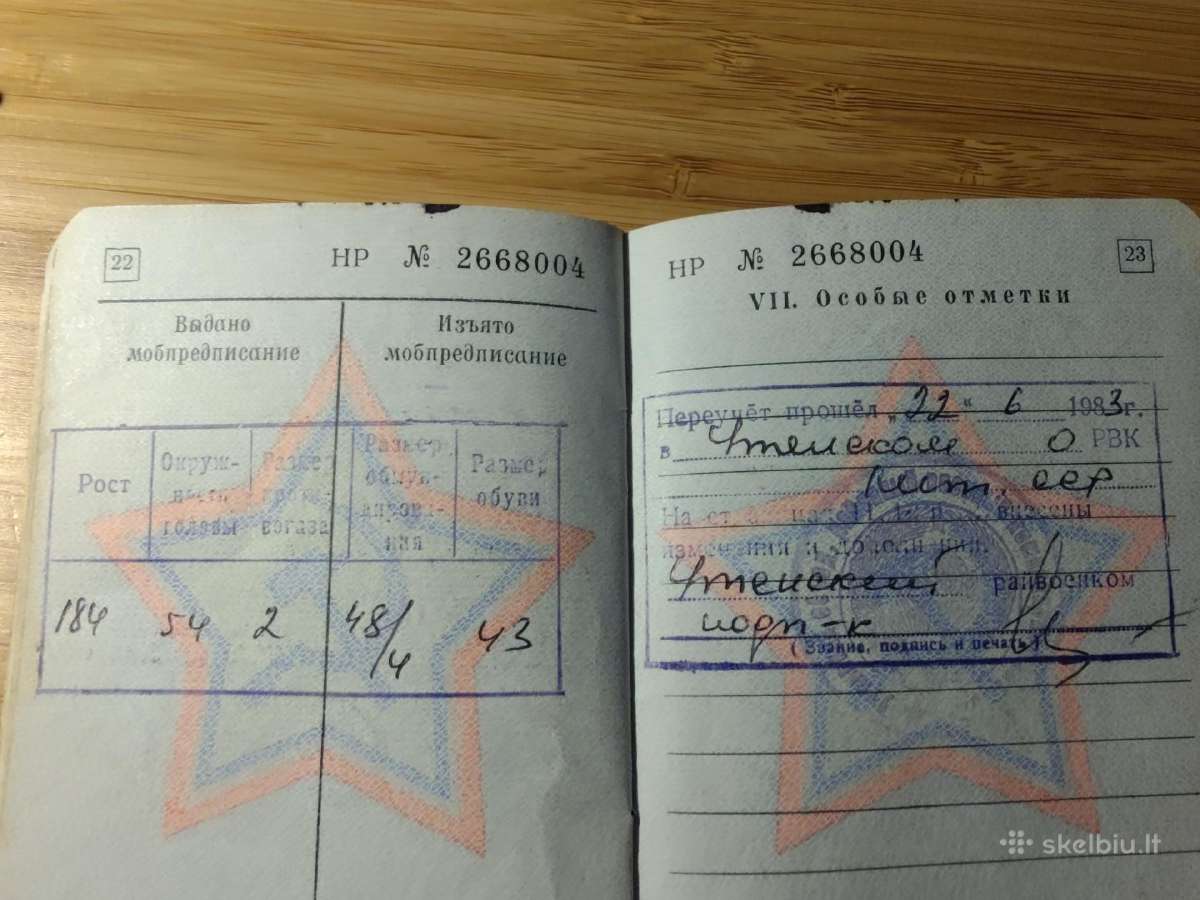 22
НР № 2668004
Выдано мобпредписание
Изъято мобпредписание
Рост
Окруж-
ность
головы
Размер
проти-
вогаза
Размер
обмун-
дирова-
ния
Размер
обуви
184 54 2 48/4 43
НР № 2668004
23
VII. Особые отметки
Переучёт прошёл „22“ 6 1983г.
в Утенском О РВК
Лит. ССР
На ст внесены
изменения и дополнения.
Утенский райвоенком
подп-к
(Звание, подпись и печать)
skelbiu.lt